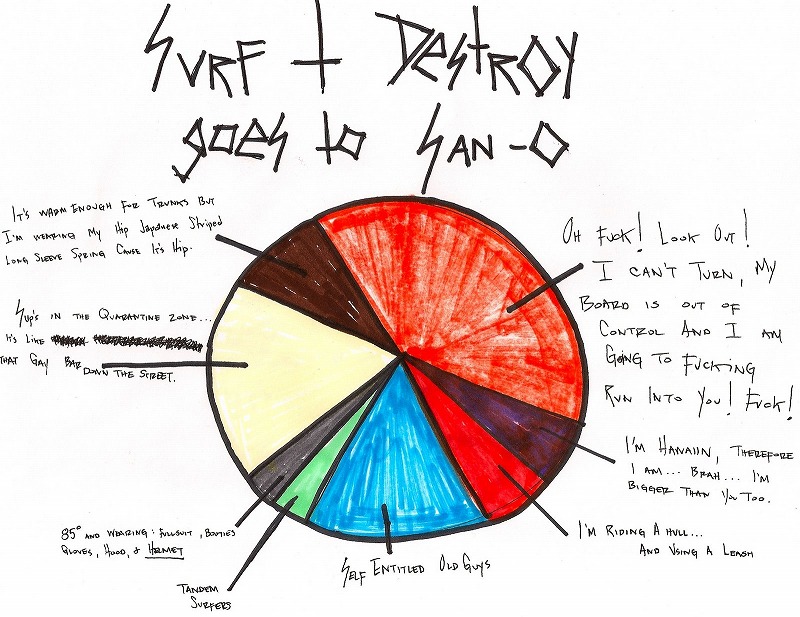 SURF + DESTROY
goes to SAN-O
IT'S WARM ENOUGH FOR TRUNKS BUT
I'M WEARING MY HIP JAPANESE STRIPED
LONG SLEEVE SPRING CAUSE IT'S HIP.
SUP'S IN THE QUARANTINE ZONE...
IT'S LIKE
THAT GAY BAR
DOWN THE STREET.
85° AND WEARING: FULLSUIT, BOOTIES
GLOVES, HOOD, & HELMET
TANDEM
SURFERS
SELF ENTITLED OLD GUYS
OH FUCK! LOOK OUT!
I CAN'T TURN, MY
BOARD IS OUT OF
CONTROL AND I AM
GOING TO FUCKING
RUN INTO YOU! FUCK!
I'M HAWAIIN, THEREFORE
I AM... BRAH... I'M
BIGGER THAN YOU TOO.
I'M RIDING A HULL...
AND USING A LEASH